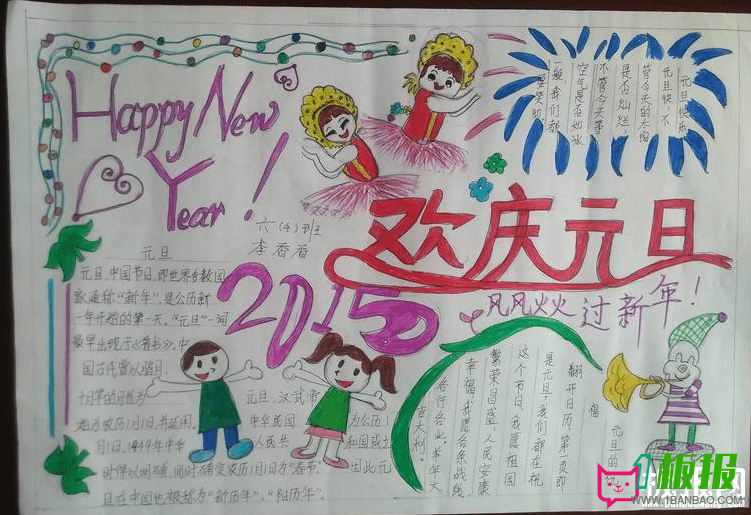 Happy New
Year!
六(4)班
李香香
元旦快乐
元旦快,不
管今天的太阳
是否灿烂
不管今天等
空气是否如冰
一般我们都
要笑
欢庆元旦
风风火火过新年!
2015
元旦
元旦,中国节日,即世界多数国
家通称“新年”,是公历新
一年开始的第一天。“元旦”一词
最早出现于《晋书》。中
国古代曾以腊月、
十月等的月首为
元旦,汉武帝
为公历1
月1日,1949年中华
人民共
和国成立
时得以明确,同时确定农历1月1日为“春节”
因此元
旦在中国也被称为“新历年”、“阳历年”。
元旦的祝
福
翻开日历,第一页即
是元旦!我们都在祝
这个节日,我愿祖国
繁荣昌盛,人民安康
幸福,我愿各条战线,
各行各业,羊年大
吉大利!
板报
WWW.1BANBAO.COM